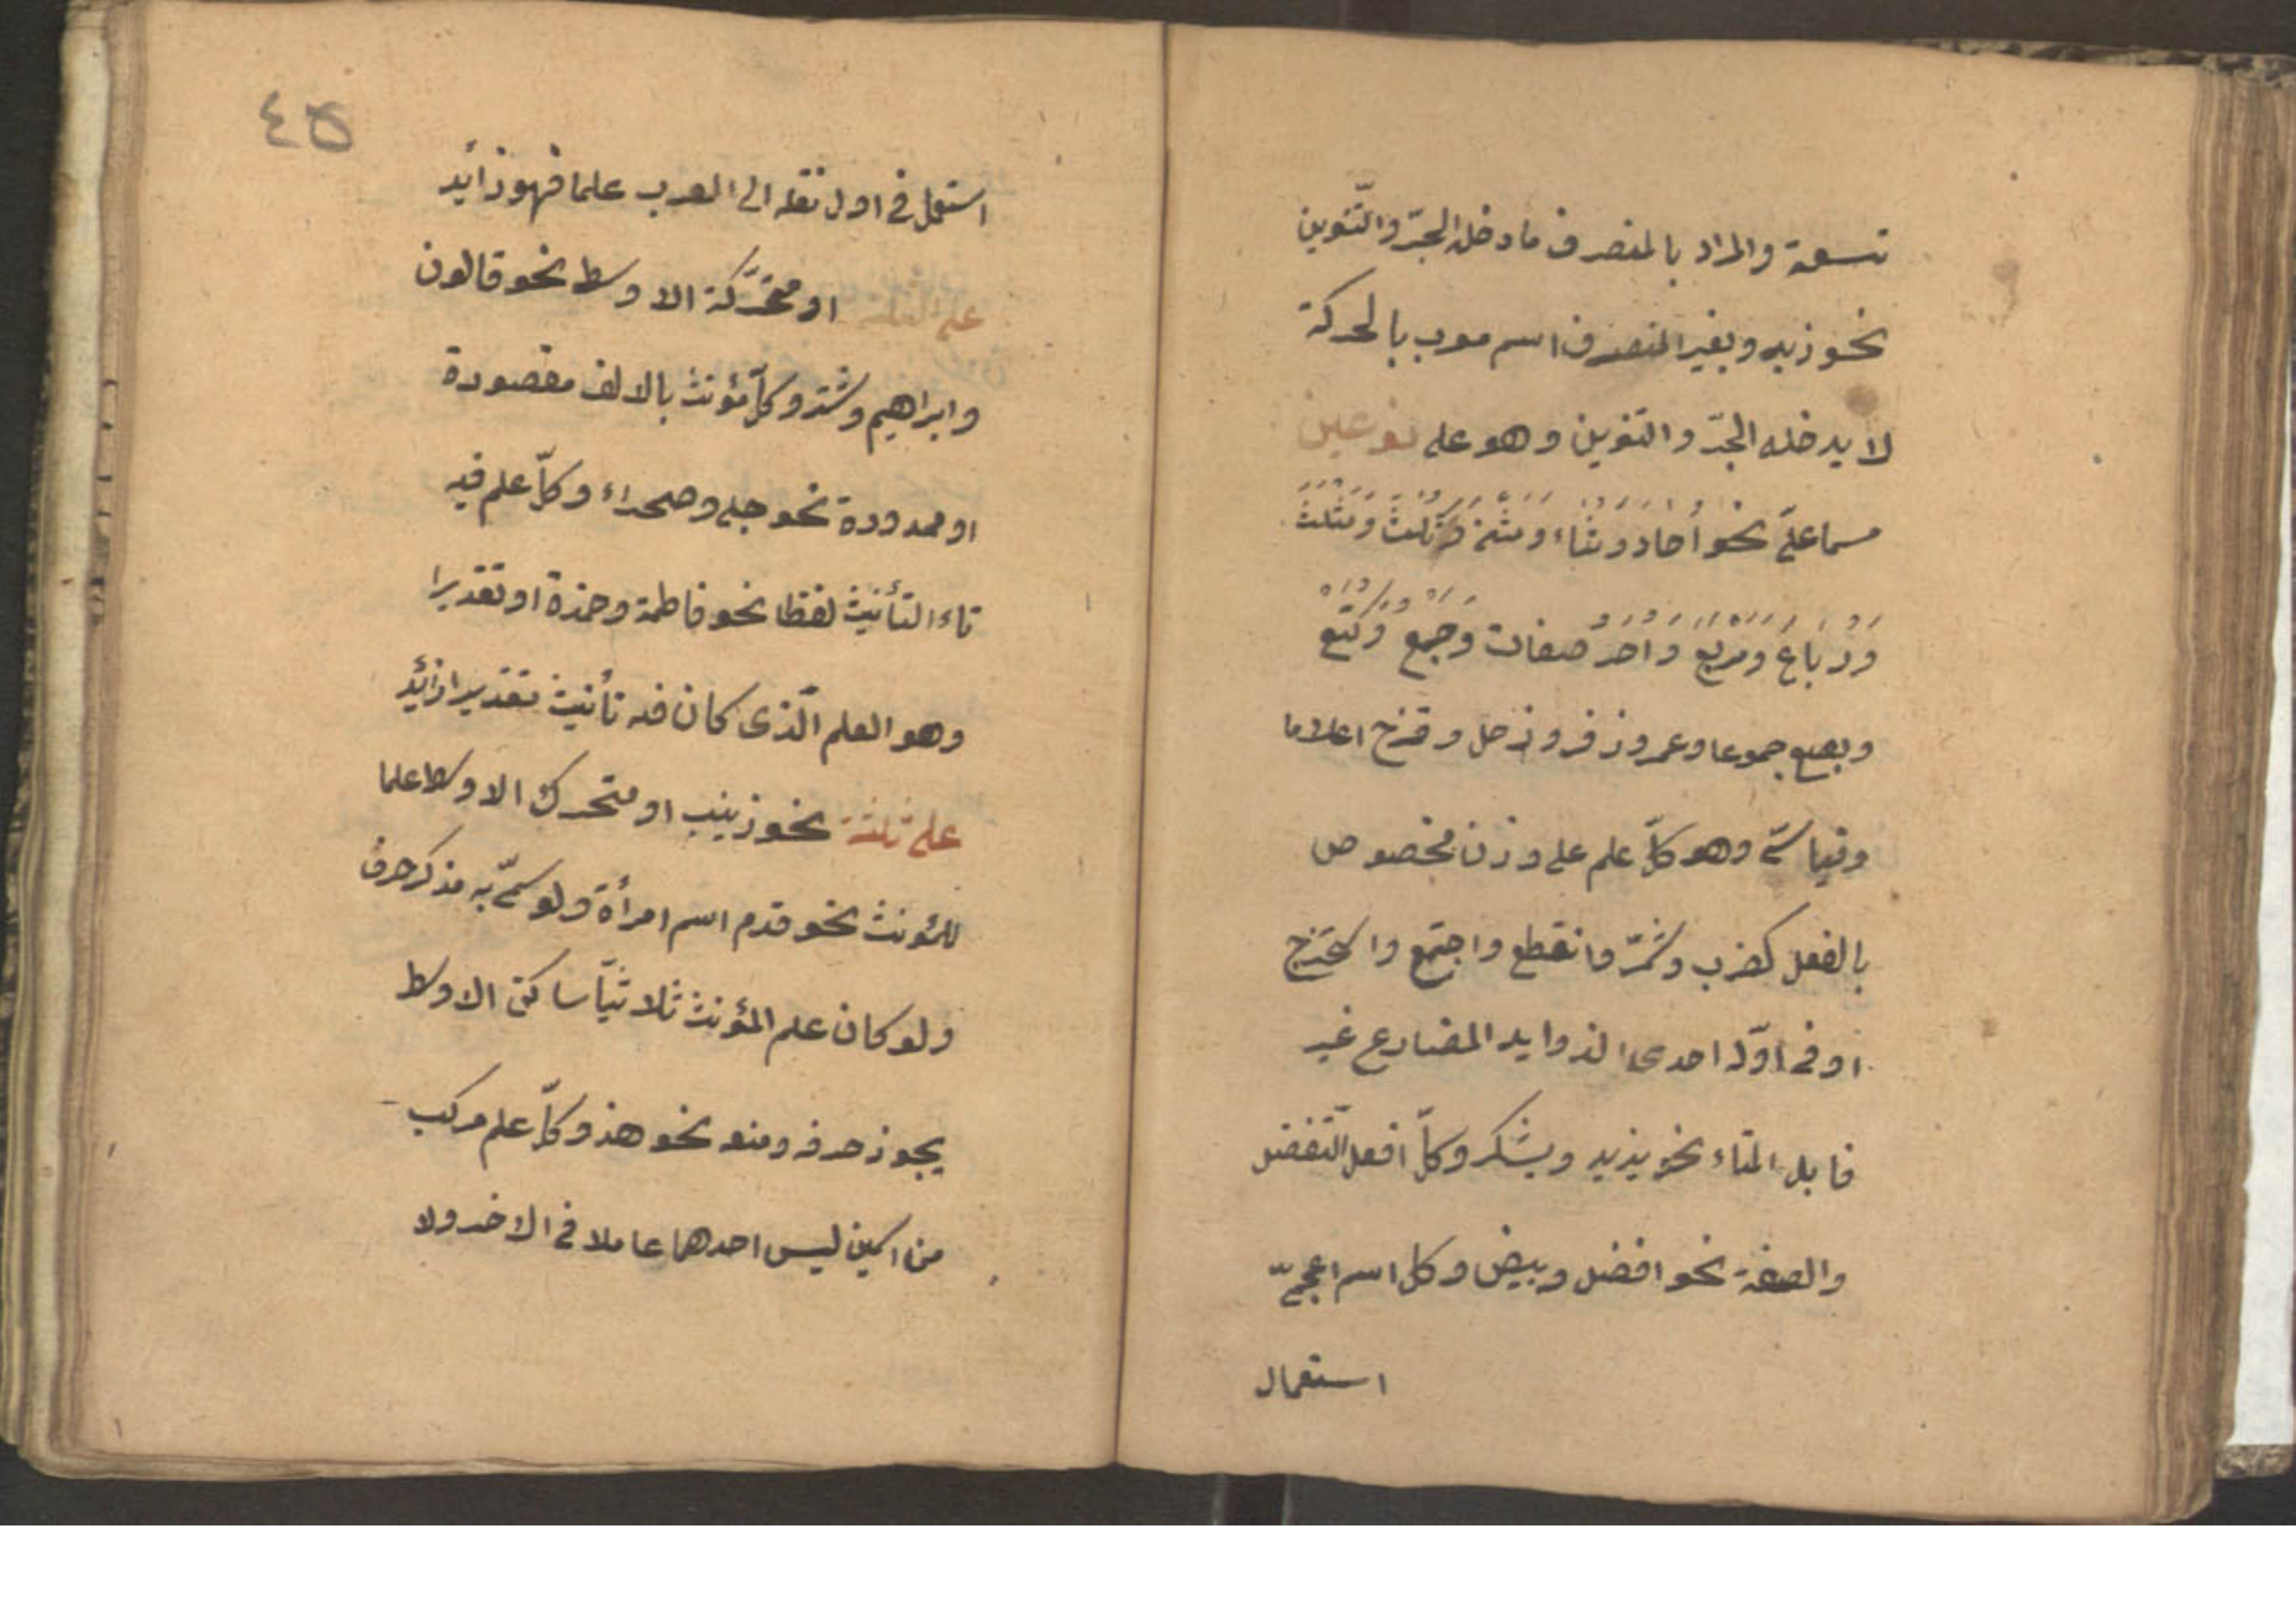 تسعة والمراد بالمنصرف ما دخله الجرّ والتّنوين
نحو زيد وبغير المنصرف اسم معرب بالحركة
لا يدخله الجرّ والتنوين وهو على نوعين
سماعىّ نحو أُحاد وثُناء ومثنى وثُلث ومَثلث
وَرُبَاعَ ومَرْبَع وأُخَرُ صفات وَجُمع وكُتَع
وبصع جموعا وعمر وزفر وزحل وقزح اعلاما
وقياسىّ وهو كلّ علم على وزن مخصوص
بالفعل كضرب وشمّر وانقطع واجتمع واستخرج
او فى اوّله احدى الزوايد المضارع غير
قابل التاء نحو يزيد ويشكر وكلّ افعل التّفضل
والصفة نحو افضل وبيض وكل اسم اعجمىّ
استعمال
٤٥
استعمل فى اول نقله الى العرب علما فهو زائد
على الثلثة او متحرّكة الاوسط نحو قالون
وابراهيم وشتر وكلّ مؤنث بالالف مقصورة
او ممدودة نحو حبلى وصحراء وكلّ علم فيه
تاء التأنيث لفظا نحو فاطمة وحمزة او تقديرا
وهو العلم الّذى كان فيه تأنيث تقديرا زائد
على ثلثة نحو زينب او متحرك الاوسط علما
للمؤنث نحو قدم اسم امرأة ولو سمّى به مذكر صرف
ولو كان علم المؤنث ثلاثيّا ساكن الاوسط
يجوز صرفه ومنعه نحو هند وكلّ علم مركب
من اسمين ليس احدهما عاملا فى الاخر ولا